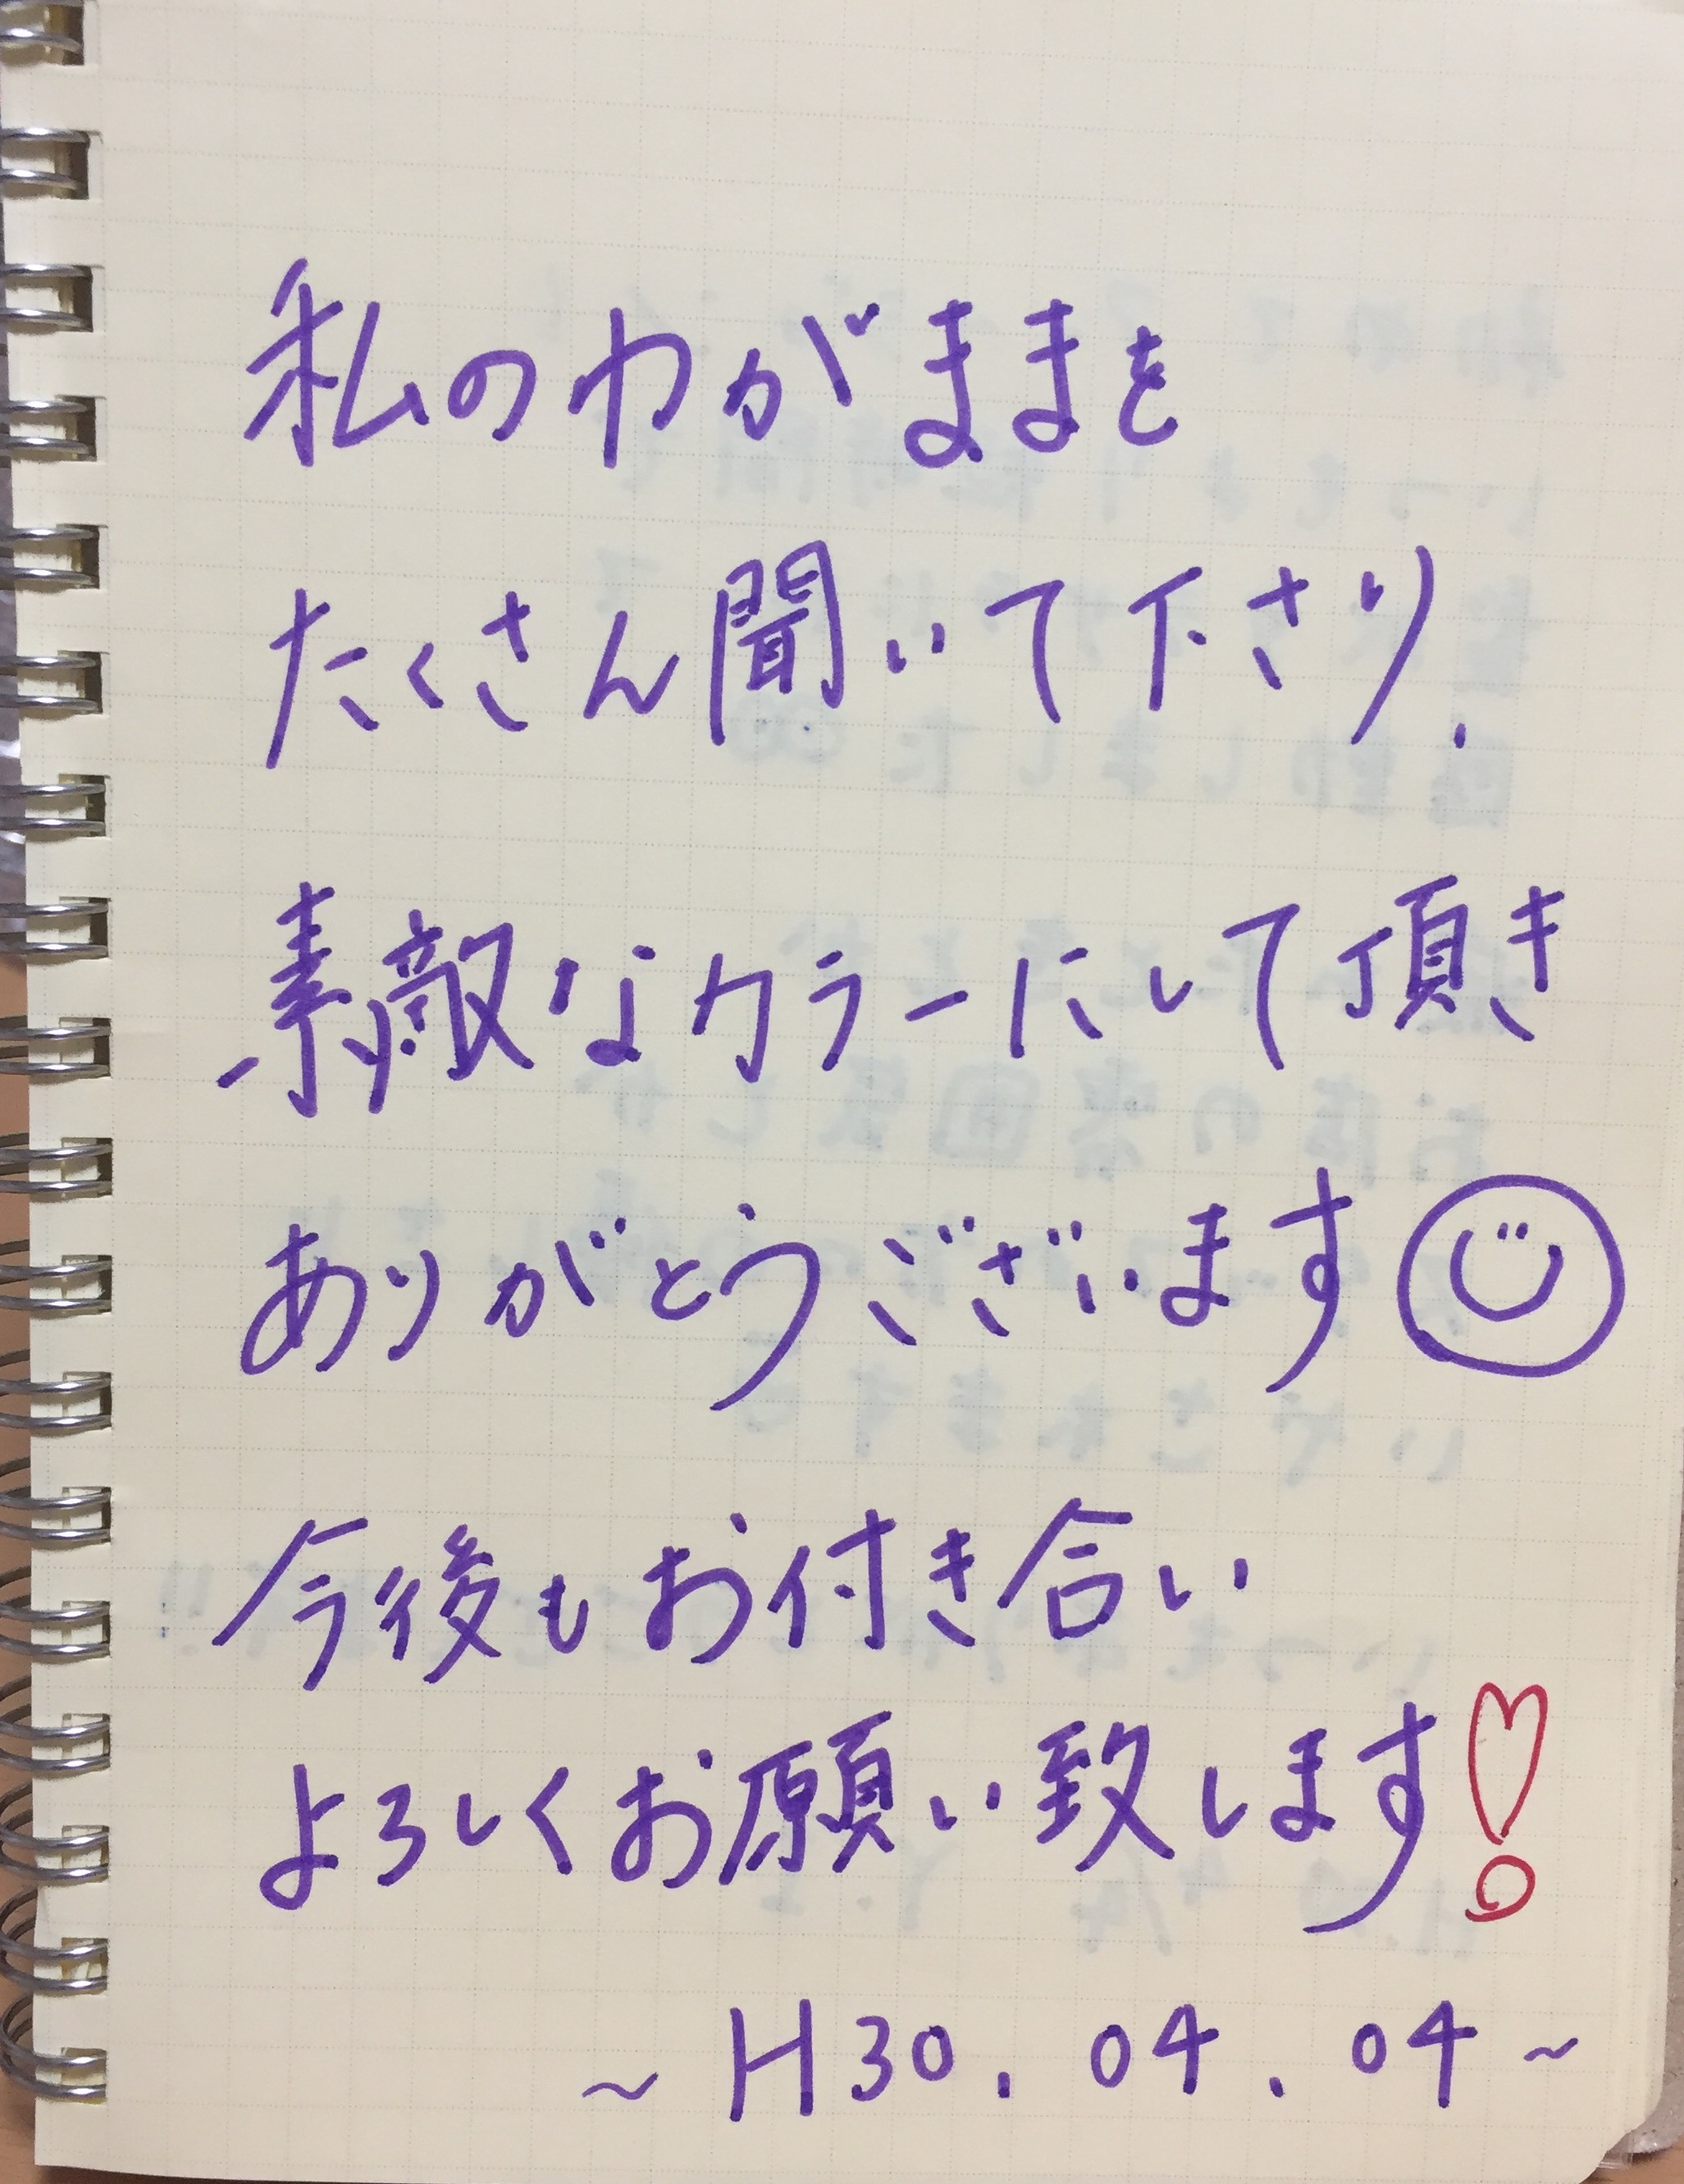 私のわがままを
たくさん聞いて下さり、
素敵なカラーにして頂き
ありがとうございます
今後もお付き合い
よろしくお願い致します!
~H30.04.04~